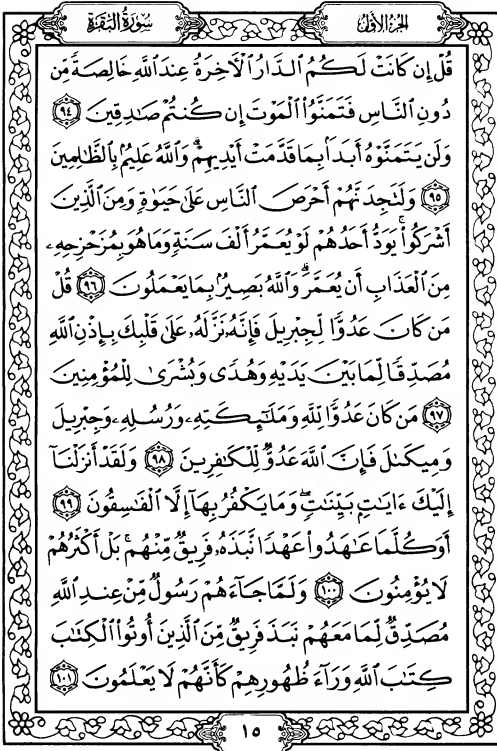 سورة البقرة
الجزء الأول
قُلْ إِن كَانَتْ لَكُمُ ٱلدَّارُ ٱلْأَخِرَةُ عِندَ ٱللَّهِ خَالِصَةً مِّن
دُونِ ٱلنَّاسِ فَتَمَنَّوُا۟ ٱلْمَوْتَ إِن كُنتُمْ صَٰدِقِينَ ٩٤
وَلَن يَتَمَنَّوْهُ أَبَدًۢا بِمَا قَدَّمَتْ أَيْدِيهِمْ ۗ وَٱللَّهُ عَلِيمٌۢ بِٱلظَّٰلِمِينَ
٩٥ وَلَتَجِدَنَّهُمْ أَحْرَصَ ٱلنَّاسِ عَلَىٰ حَيَوٰةٍ وَمِنَ ٱلَّذِينَ
أَشْرَكُوا۟ ۚ يَوَدُّ أَحَدُهُمْ لَوْ يُعَمَّرُ أَلْفَ سَنَةٍ وَمَا هُوَ بِمُزَحْزِحِهِۦ
مِنَ ٱلْعَذَابِ أَن يُعَمَّرَ ۗ وَٱللَّهُ بَصِيرٌۢ بِمَا يَعْمَلُونَ ٩٦ قُلْ
مَن كَانَ عَدُوًّا لِّجِبْرِيلَ فَإِنَّهُۥ نَزَّلَهُۥ عَلَىٰ قَلْبِكَ بِإِذْنِ ٱللَّهِ
مُصَدِّقًا لِّمَا بَيْنَ يَدَيْهِ وَهُدًى وَبُشْرَىٰ لِلْمُؤْمِنِينَ
٩٧ مَن كَانَ عَدُوًّا لِّلَّهِ وَمَلَٰٓئِكَتِهِۦ وَرُسُلِهِۦ وَجِبْرِيلَ
وَمِيكَىٰلَ فَإِنَّ ٱللَّهَ عَدُوٌّ لِّلْكَٰفِرِينَ ٩٨ وَلَقَدْ أَنزَلْنَآ
إِلَيْكَ ءَايَٰتٍۭ بَيِّنَٰتٍ ۖ وَمَا يَكْفُرُ بِهَآ إِلَّا ٱلْفَٰسِقُونَ ٩٩
أَوَكُلَّمَا عَٰهَدُوا۟ عَهْدًا نَّبَذَهُۥ فَرِيقٌ مِّنْهُم ۚ بَلْ أَكْثَرُهُمْ
لَا يُؤْمِنُونَ ١٠٠ وَلَمَّا جَآءَهُمْ رَسُولٌ مِّنْ عِندِ ٱللَّهِ
مُصَدِّقٌ لِّمَا مَعَهُمْ نَبَذَ فَرِيقٌ مِّنَ ٱلَّذِينَ أُوتُوا۟ ٱلْكِتَٰبَ
كِتَٰبَ ٱللَّهِ وَرَآءَ ظُهُورِهِمْ كَأَنَّهُمْ لَا يَعْلَمُونَ ١٠١
١٥